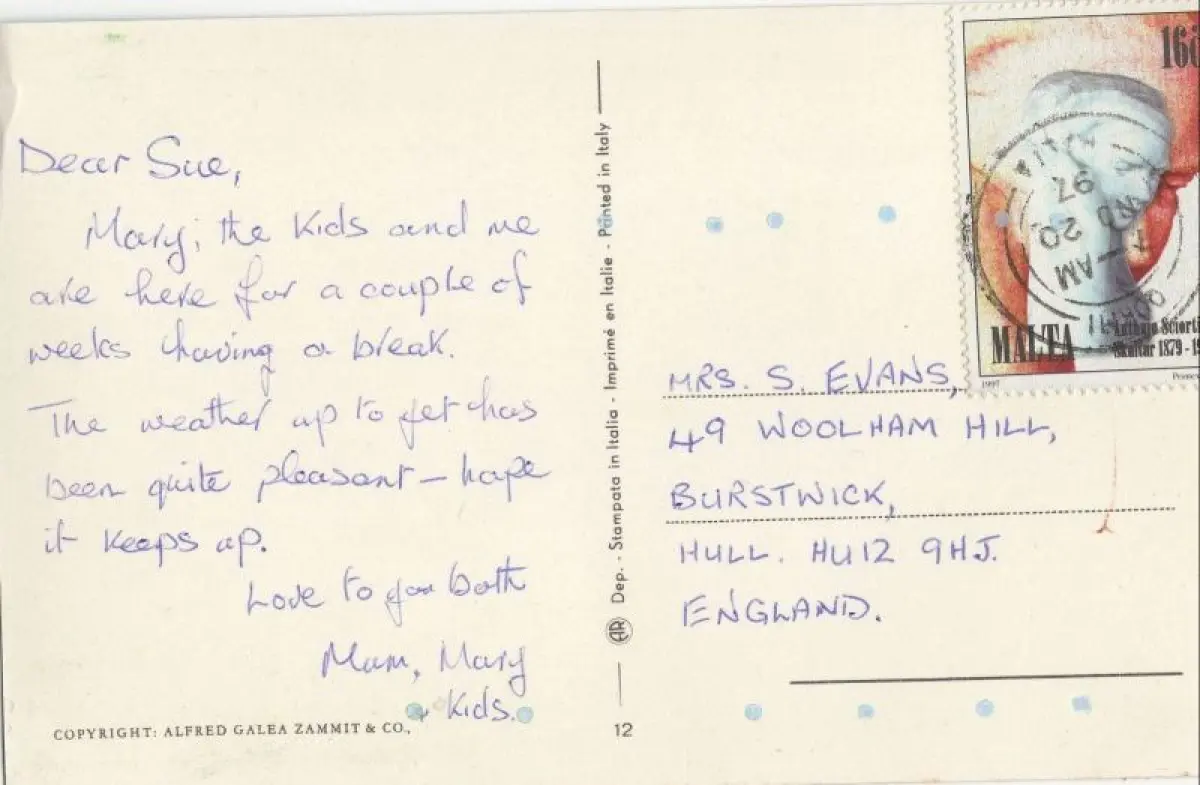 Dear Sue,
Mary, the Kids and me
are here for a couple of
weeks having a break.
The weather up to yet has
been quite pleasant – hope
it keeps up.
Love to you both
Mum, Mary
+ Kids.
COPYRIGHT: ALFRED GALEA ZAMMIT & CO.,
AR Dep. - Stampata in Italia - Imprimé en Italie - Printed in Italy
12
16c
MALTA
Antonio Sciorti
Skultur 1879 - 19
1997
Printex
MALTA
97
20
AM
QORMI
MRS. S. EVANS,
49 WOOLHAM HILL,
BURSTWICK,
HULL. HU12 9HJ.
ENGLAND.